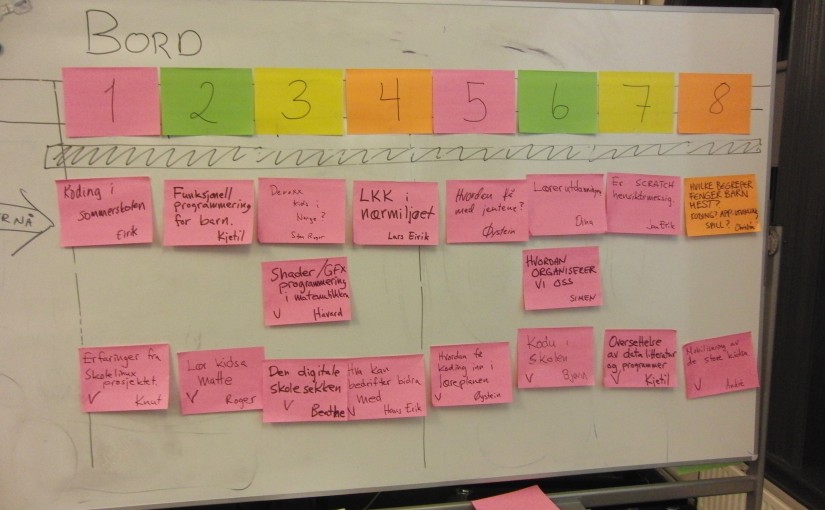 BORD
1 2 3 4 5 6 7 8
NÅ
Koding i
sommerskolen
Eirik
Funksjonell
programmering
for barn.
Kjetil
kids i
Norge?
LKK i
nærmiljøet
Lars Eirik
Hvordan få
med jentene?
Øystein
Lærerutdanningen
Er SCRATCH
hensiktsmessig
Jan Erik
HVILKE BEGREPER
FENGER BARN
MEST?
KODING? APP UTVIKLING
SPILL?
Shader/GFX
programmering
i matematikken
✓ Håvard
HVORDAN
ORGANISERER
VI OSS
SIMEN
Erfaringer fra
Skolelinux
prosjektet
✓ Knut
Lær kidsa
matte
✓ Roger
Den digitale
skolesekken
✓ Berthe
Hva kan
bedrifter bidra
med
✓ Hans Erik
Hvordan få
koding inn i
læreplanen
✓ Øystein
Kodu i
skolen
✓ Bjørn
Oversettelse
av datalitteratur
og programmer
✓ Kjetil
Mobilisering av
de store kidsa
✓ André